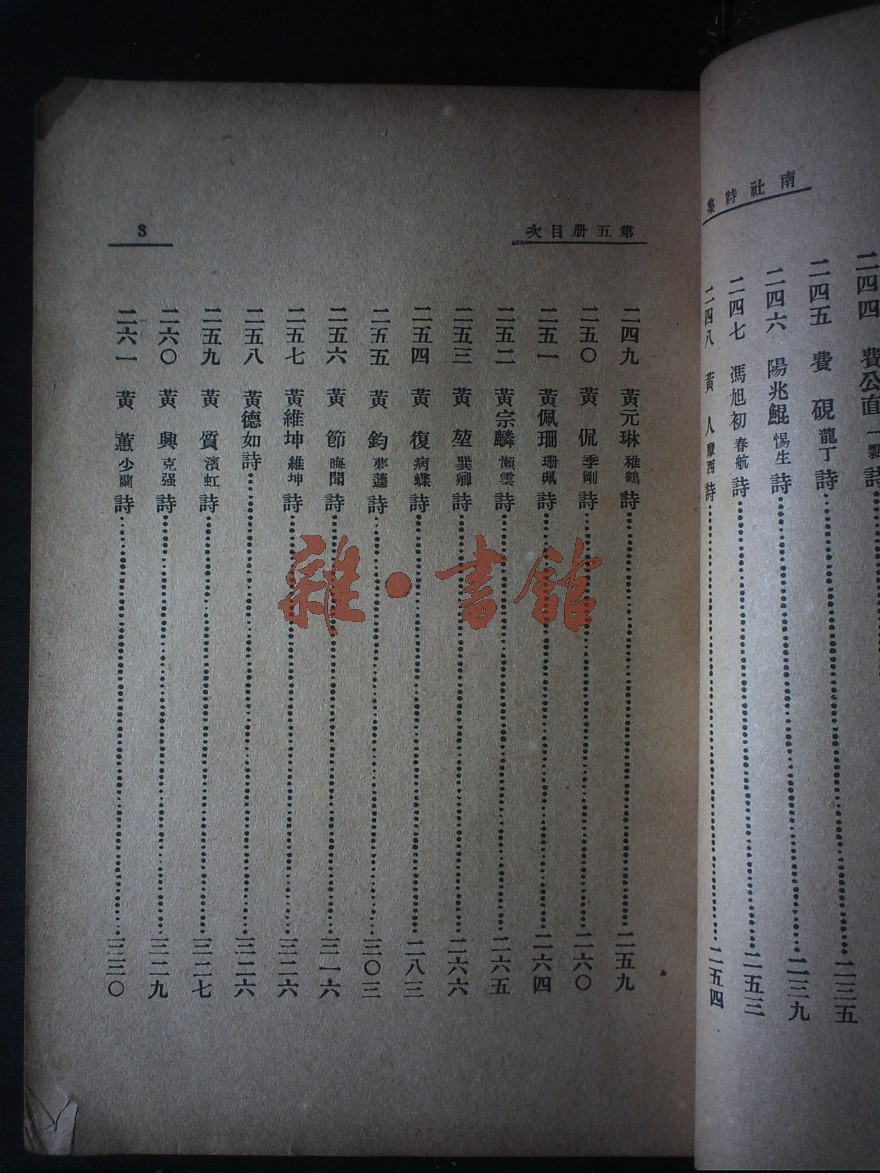 南社詩集
二四四 費公直一瓢詩
二四五 費硯龍丁詩 二三五
二四六 陽兆鯤惕生詩 二三九
二四七 馮旭初春航詩 二五三
二四八 黃人摩西詩 二五四
第五册目次
3
二四九 黃元琳稚鶴詩 二五九
二五〇 黃侃季剛詩 二六〇
二五一 黃佩珊珊珮詩 二六四
二五二 黃宗麟懶雲詩 二六五
二五三 黃堃巽卿詩 二六六
二五四 黃復病蝶詩 二八三
二五五 黃鈞夢蘧詩 三〇三
二五六 黃節晦聞詩 三一六
二五七 黃維坤維坤詩 三二六
二五八 黃德如詩 三二六
二五九 黃質濱虹詩 三二七
二六〇 黃興克强詩 三二九
二六一 黃蕙少蘭詩 三三〇
雜·書館